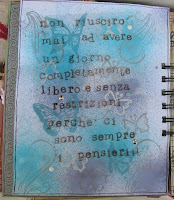 non riuscirò
mai ad avere
un giorno
completamente
libero e senza
restrizioni
perchè ci
sono sempre
i pensieri!!